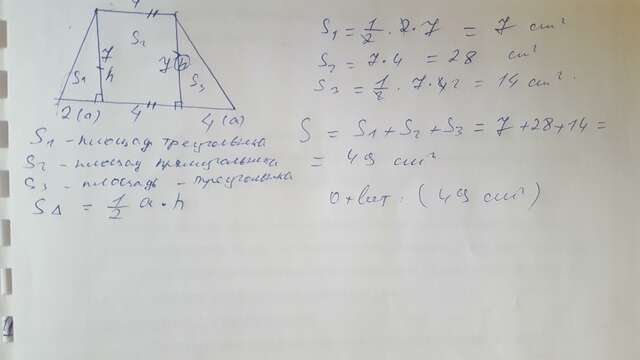 4
S₂
7
h
7
h
S₁
S₃
2 (a)
4
4 (a)
S₁ - площад треугольника
S₂ - площад прямоугольника
S₃ - площадь - треугольника
S△ = 1/2 a · h
S₁ = 1/2 · 2 · 7 = 7 cm²
S₂ = 7 · 4 = 28 cm²
S₃ = 1/2 · 7 · 4 = 14 cm²
S = S₁ + S₂ + S₃ = 7 + 28 + 14 =
= 49 cm²
Ответ: (49 cm²)